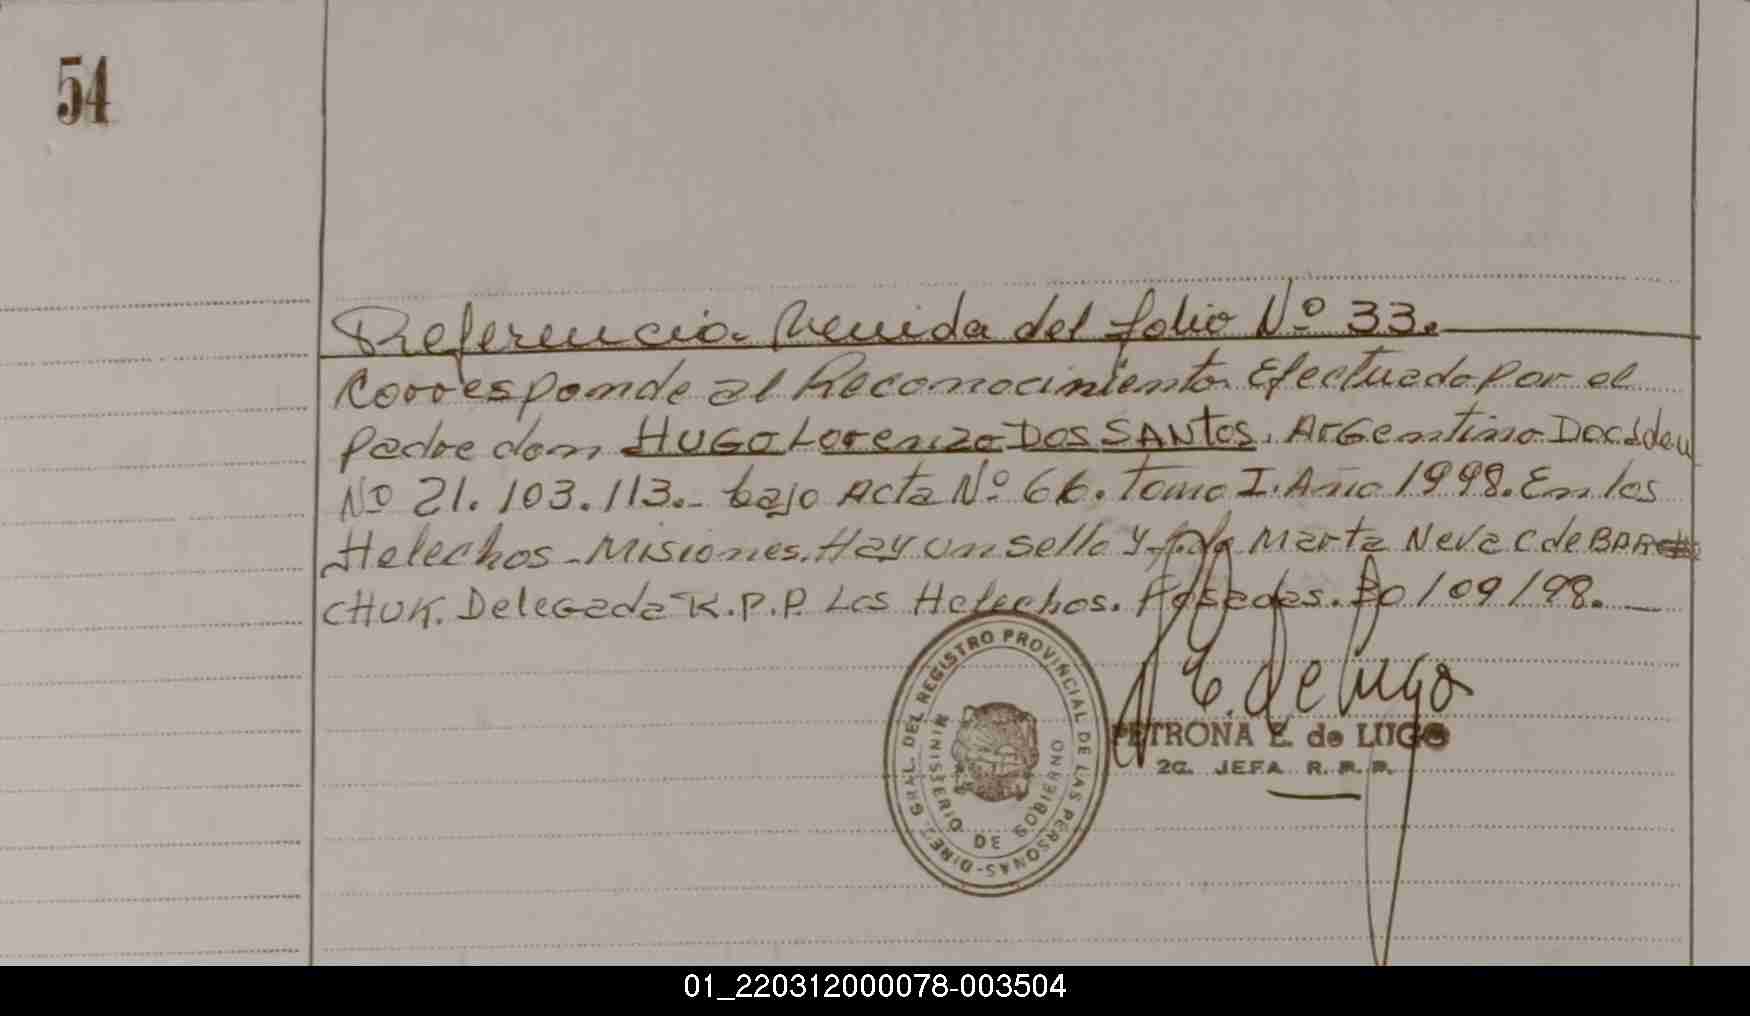 54
Referencia Venida del folio Nº 33.
Corresponde al Reconocimiento Efectuado por el
Padre don HUGO Lorenzo DOS SANtos. ArGentino Doc.
Nº 21.103.113.- bajo Acta Nº 66. Tomo I. Año 1998. En los
Helechos - Misiones. Hay un sello y fdo Marta Neva C de BAR
CHUK. DeleGada R.P.P. Los Helechos. Posadas. 30/09/98.
DIREC. GRAL. DEL REGISTRO PROVINCIAL DE LAS PERSONAS
MINISTERIO DE GOBIERNO
E. de Lugo
PETRONA E. de LUGO
2a. JEFA R. P. P.
01_220312000078-003504